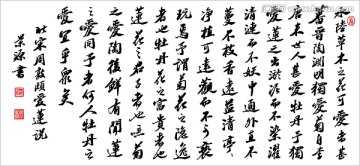 水陸草木之花可愛者甚
蕃晉陶淵明獨愛菊自李
唐來世人甚愛牡丹予獨
愛蓮之出淤泥而不染濯
清漣而不妖中通外直不
蔓不枝香遠益清亭亭
淨植可遠觀而不可褻
玩焉予謂菊花之隱逸
者也牡丹花之富貴者也
蓮花之君子者也噫菊
之愛陶後鮮有聞蓮
之愛同予者何人牡丹之
愛宜乎衆矣
北宋周敦頤愛蓮說
書